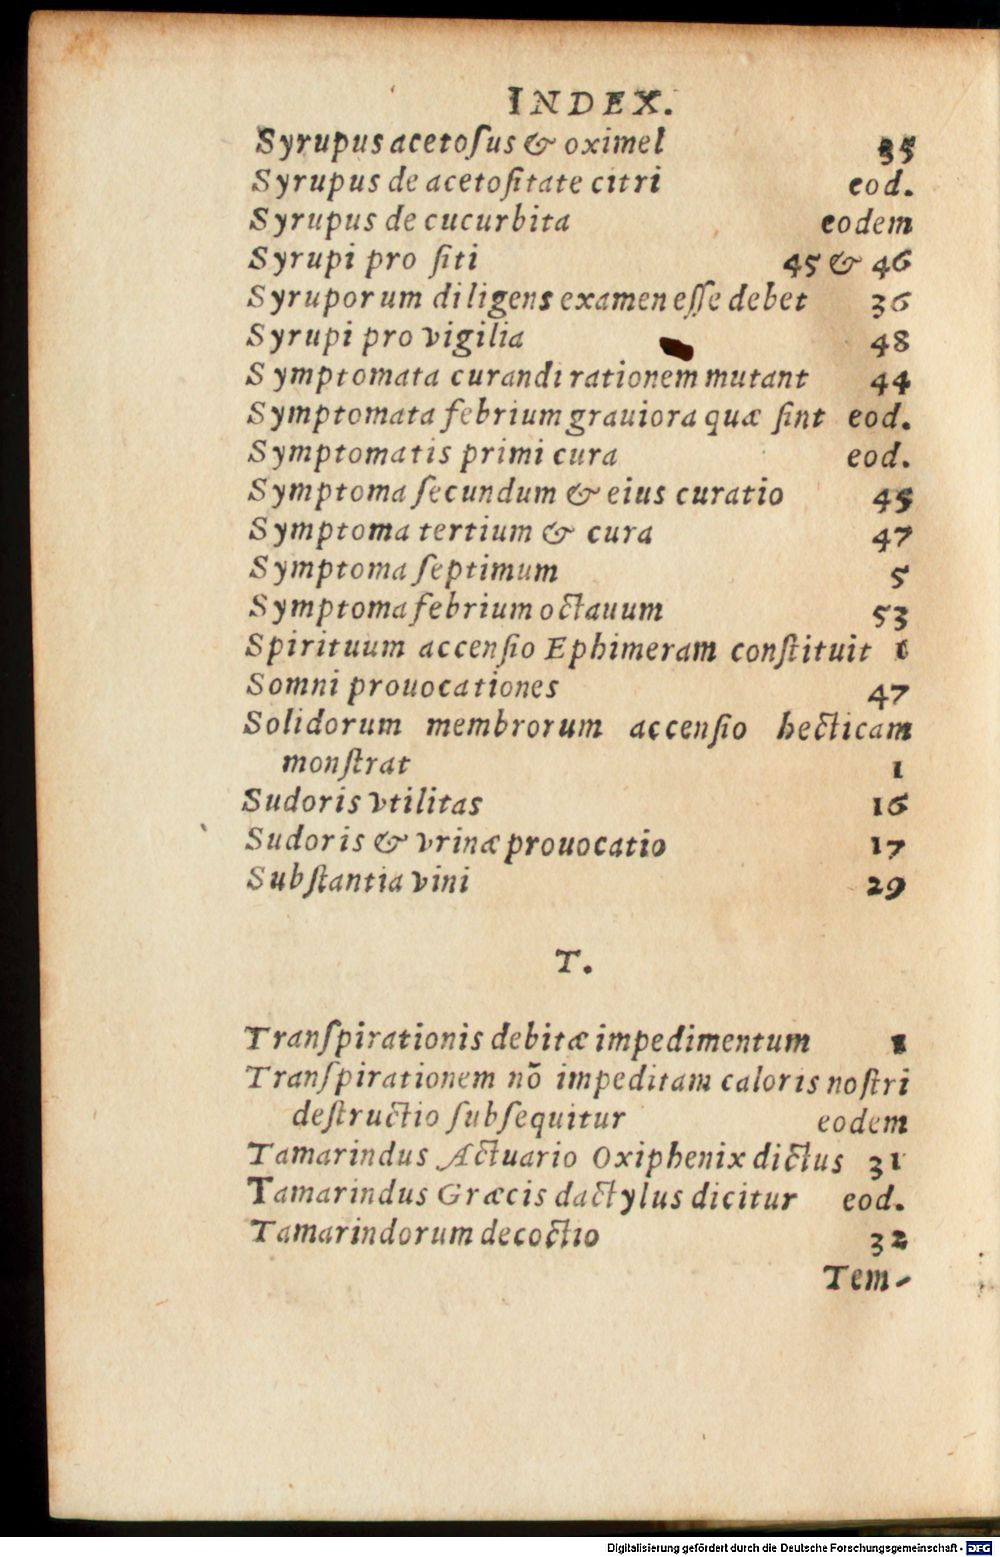 INDEX.
Syrupus acetoſus & oximel 35
Syrupus de acetoſitate citri eod.
Syrupus de cucurbita eodem
Syrupi pro ſiti 45 & 46
Syruporum diligens examen eſſe debet 36
Syrupi pro vigilia 48
Symptomata curandi rationem mutant 44
Symptomata febrium grauiora quæ ſint eod.
Symptomatis primi cura eod.
Symptoma ſecundum & eius curatio 45
Symptoma tertium & cura 47
Symptoma ſeptimum 5
Symptoma febrium octauum 53
Spirituum accenſio Ephimeram conſtituit 1
Somni prouocationes 47
Solidorum membrorum accenſio hecticam
monſtrat 1
Sudoris vtilitas 16
Sudoris & vrinæ prouocatio 17
Subſtantia vini 29
T.
Tranſpirationis debitæ impedimentum
Tranſpirationem nõ impeditam caloris noſtri
deſtructio ſubſequitur eodem
Tamarindus Actuario Oxiphenix dictus 31
Tamarindus Græcis dactylus dicitur eod.
Tamarindorum decoctio 32
Tem-
Digitalisierung gefördert durch die Deutsche Forschungsgemeinschaft - DFG